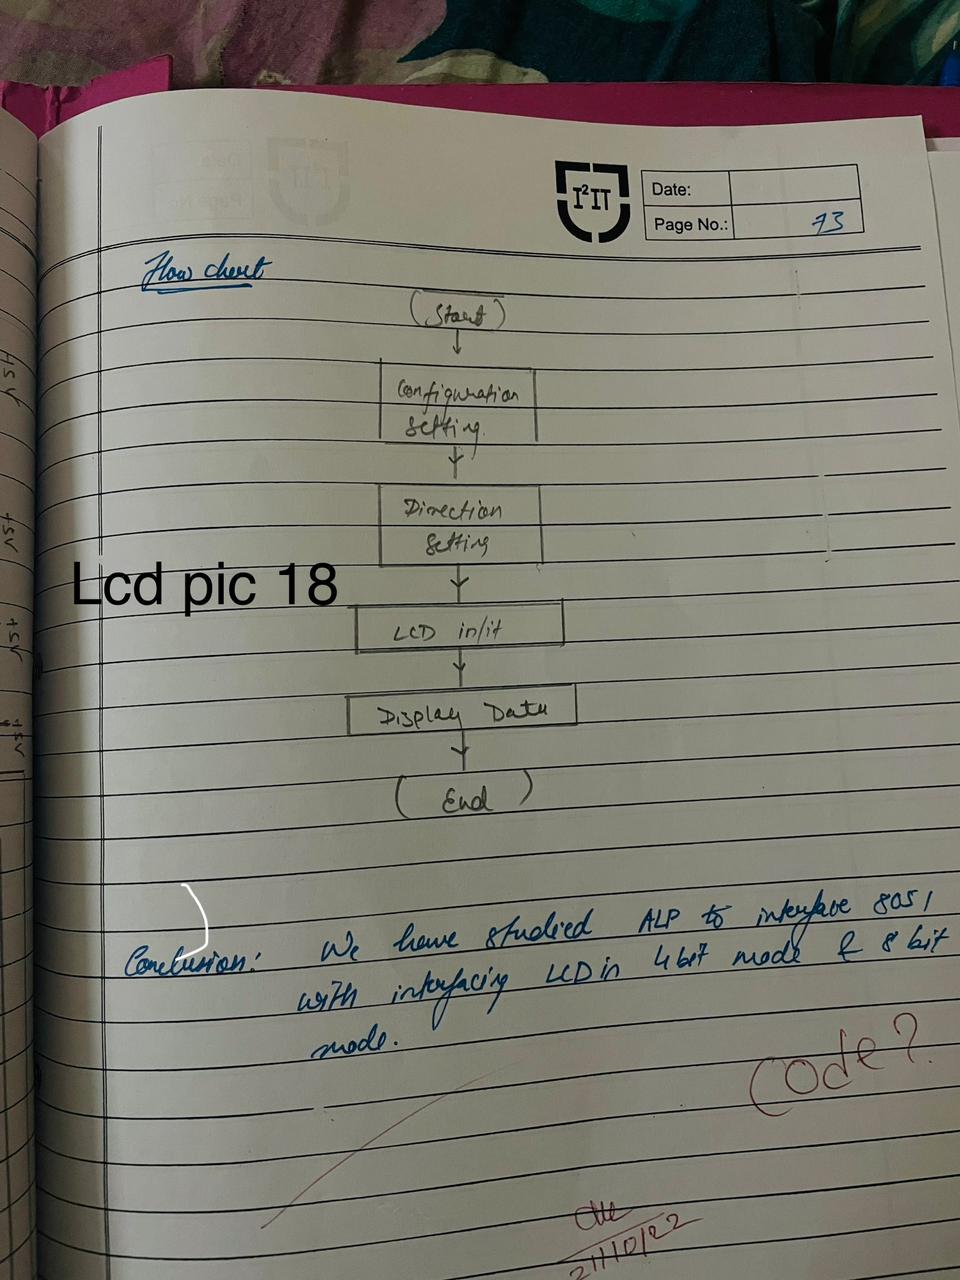 I²IT
Date:
Page No.: 73
Flow chart
Start
Configuration
Setting
Direction
Setting
Lcd pic 18
LCD in/it
Display Data
End
Conclusion: We have studied ALP to interface 8051
with interfacing LCD in 4 bit mode & 8 bit
mode.
Code?
21/10/22